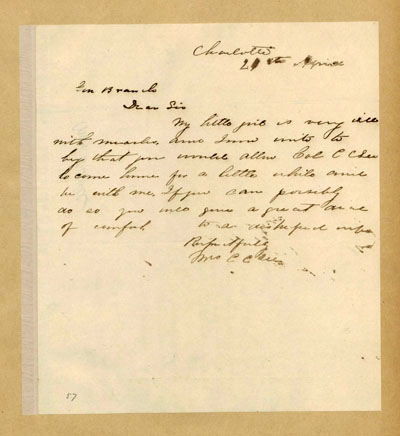 Charlotte
21st April
Gen Branch
Dear Sir
My little girl is very ill
with measles, and I now write to
beg that you would allow Col C C Lee
to come home for a little while and
be with me. If you can possibly
do so you will give a great deal
of comfort to a distressed wife
Respectfully
Mrs C C Lee
57